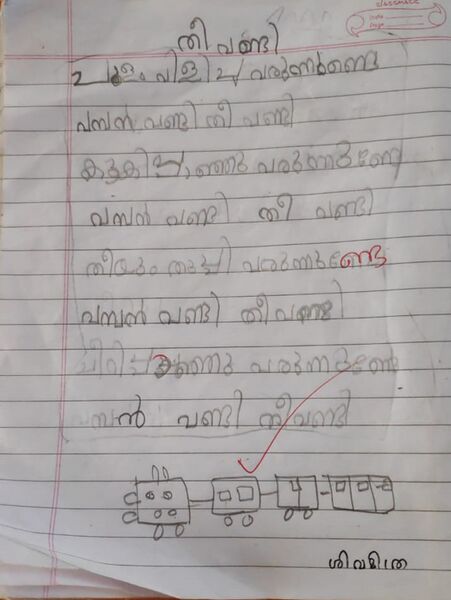 classmate
Date
Page
തീ വണ്ടി
ചൂളം വിളിച്ച് വരുന്നുണ്ടെ
വമ്പൻ വണ്ടി തീ വണ്ടി
വരുന്നുണ്ടേ
വമ്പൻ വണ്ടി തീ വണ്ടി
തീയും തുപ്പി വരുന്നുണ്ടെ
വമ്പൻ വണ്ടി തീവണ്ടി
വരുന്നുണ്ടേ
വമ്പൻ വണ്ടി തീവണ്ടി